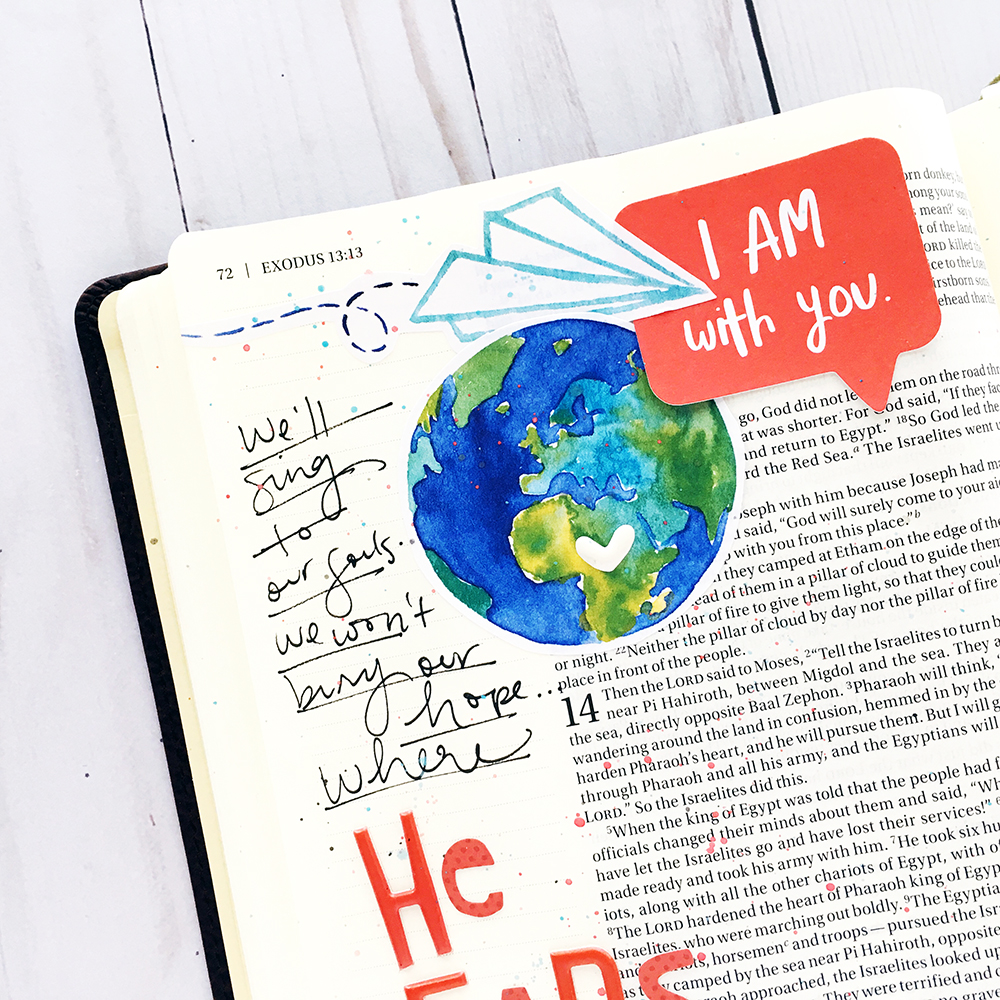 72 | EXODUS 13:13
I AM
with you.
We'll
sing
to
our souls.
we won't
bury our
hope...
where
He
donkey,
your
mean?'
of the land
killed
to the
that the
them on the road
go, God did not
was shorter. For God said, "If they
and return to Egypt." 18So God led the
the Red Sea.a The Israelites went
with him because Joseph had
said, "God will surely come to your
with you from this place."b
they camped at Etham on the edge of the
of them in a pillar of cloud to guide them
pillar of fire to give them light, so that they
or night. 22Neither the pillar of cloud by day nor the pillar of fire
place in front of the people.
14 Then the LORD said to Moses, 2"Tell the Israelites to turn
near Pi Hahiroth, between Migdol and the sea. They
the sea, directly opposite Baal Zephon. 3Pharaoh will think,
wandering around the land in confusion, hemmed in by the
harden Pharaoh's heart, and he will pursue them. But I will
through Pharaoh and all his army, and the Egyptians will
LORD." So the Israelites did this.
5When the king of Egypt was told that the people had
officials changed their minds about them and said,
have let the Israelites go and have lost their services!" 6
made ready and took his army with him. 7He took six
iots, along with all the other chariots of Egypt, with
8The LORD hardened the heart of Pharaoh king of
Israelites, who were marching out boldly. 9The
and horsemenc and troops — pursued the
they camped by the sea near Pi Hahiroth, opposite
approached, the Israelites looked
They were terrified and